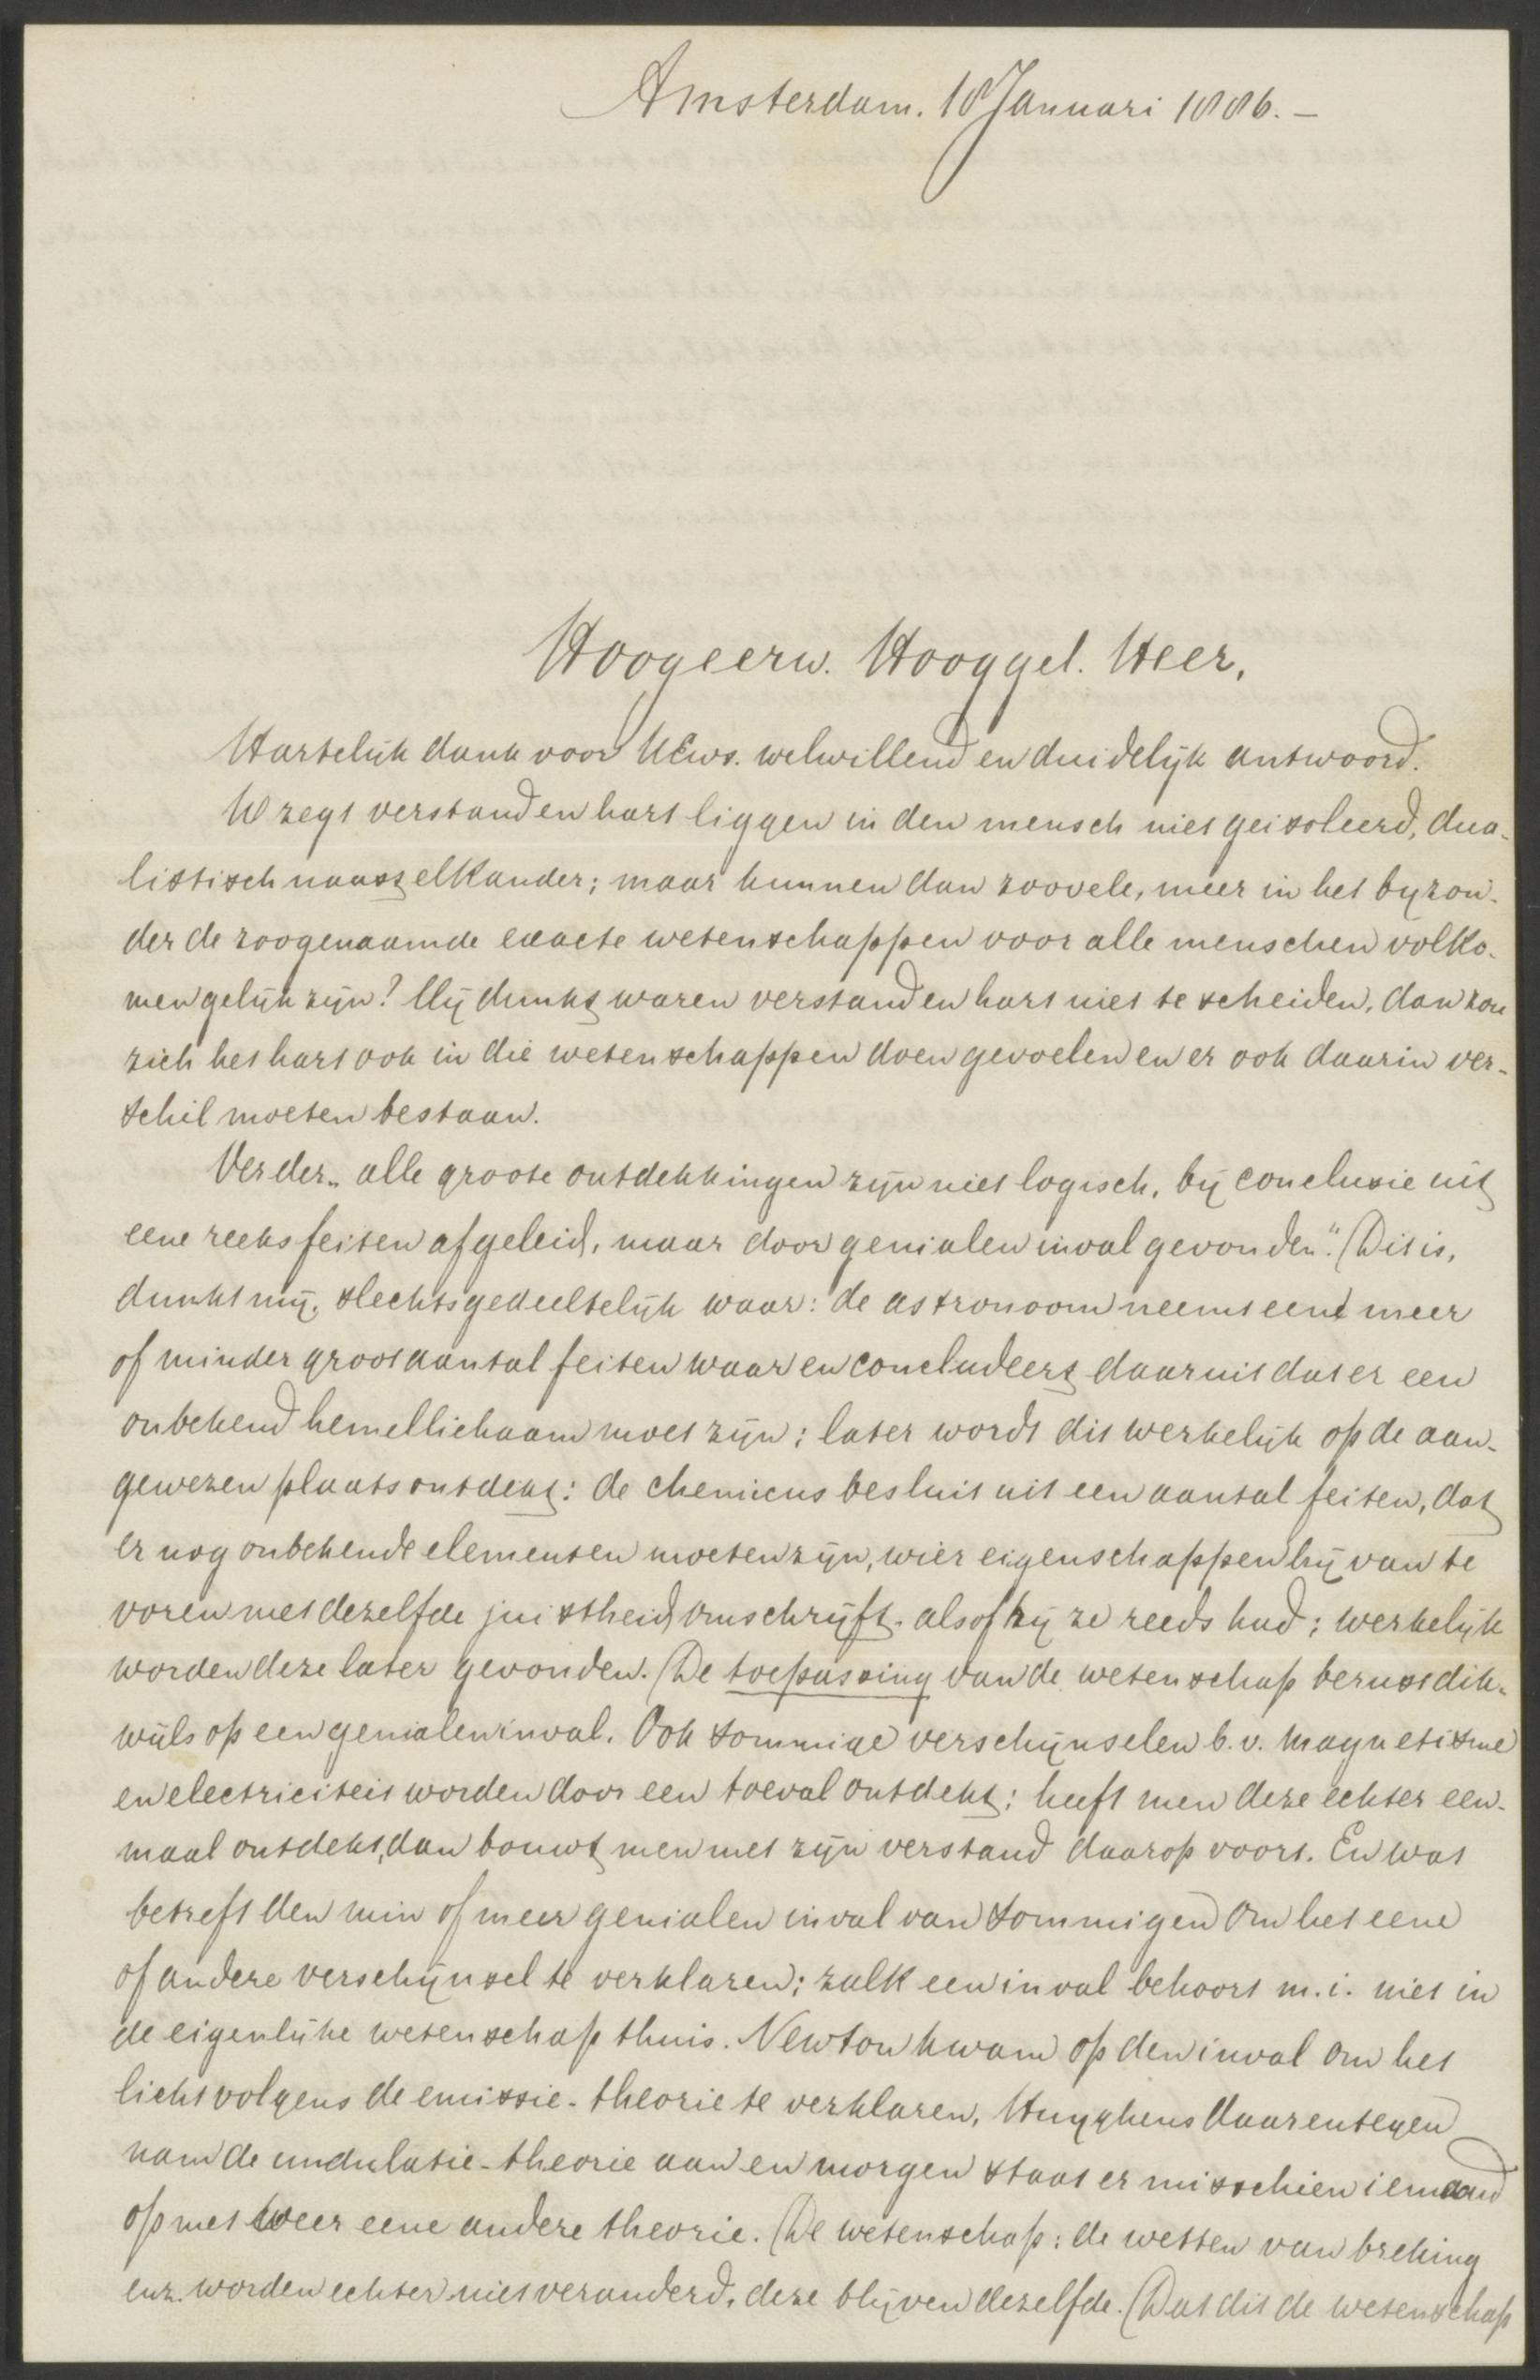 Amsterdam. 18 Januari 1886.—
Hoogeerw. Hooggel. Heer,
Hartelijk dank voor UEws. welwillend en duidelijk antwoord.
U zegt verstand en hart liggen in den mensch niet geisoleerd, dua-
listisch naast elkander; maar kunnen dan zoovele, meer in het byzon-
der de zoogenaamde exacte wetenschappen voor alle menschen volko-
men gelijk zijn? Mij dunkt waren verstand en hart niet te scheiden, dan zou
zich het hart ook in die wetenschappen doen gevoelen en er ook daarin ver-
schil moeten bestaan.
Verder „alle groote ontdekkingen zijn niet logisch, bij conclusie uit
eene reeks feiten afgeleid, maar door genialen inval gevonden." Dit is,
dunkt mij, slechts gedeeltelijk waar: de astronoom neemt eene meer
of minder groot aantal feiten waar en concludeert daaruit dat er een
onbekend hemellichaam moet zijn; later wordt dit werkelijk op de aan-
gewezen plaats ontdekt: de chemicus besluit uit een aantal feiten, dat
er nog onbekende elementen moeten zijn, wier eigenschappen hij van te
voren met dezelfde juistheid omschrijft, alsof hij ze reeds had; werkelijk
worden deze later gevonden. De toepassing van de wetenschap berust dik-
wijls op een genialen inval. Ook sommige verschijnselen b.v. magnetisme
en electriciteit worden door een toeval ontdekt; heeft men deze echter een-
maal ontdekt, dan bouwt men met zijn verstand daarop voort. En wat
betreft den min of meer genialen inval van sommigen om het eene
of andere verschijnsel te verklaren; zulk een inval behoort m.i. niet in
de eigenlijke wetenschap thuis. Newton kwam op den inval om het
licht volgens de emissie-theorie te verklaren, Huyghens daarentegen
nam de undulatie-theorie aan en morgen staat er misschien iemand
op met weer eene andere theorie. De wetenschap: de wetten van breking
enz. worden echter niet veranderd, deze blijven dezelfde. Dat dit de wetenschap